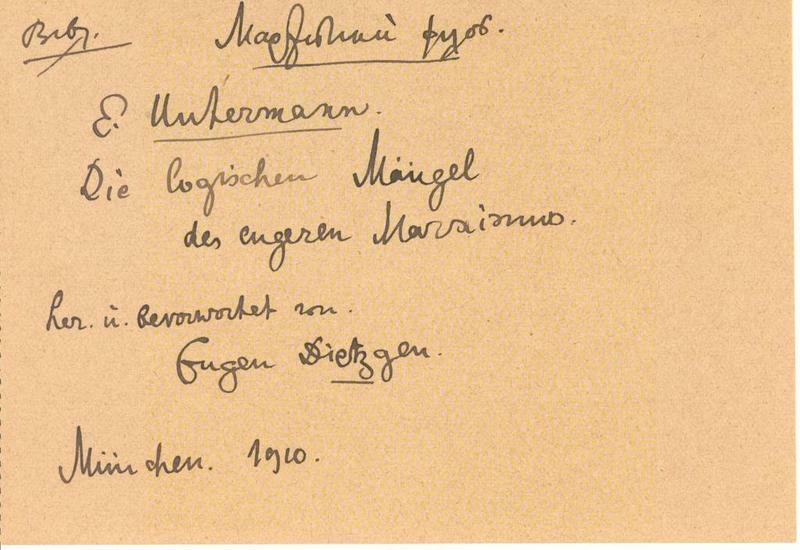 E. Untermann.
Die logischen Mängel
des engeren Marxismus.
her. u. bevorwortet von.
Eugen Dietzgen.
München. 1910.